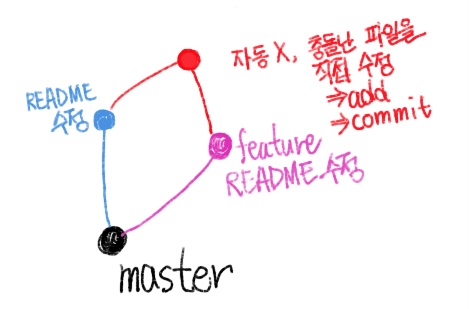 자동 X, 충돌난 파일을
직접 수정
⇒ add
→ commit
README
수정
feature
README 수정
master